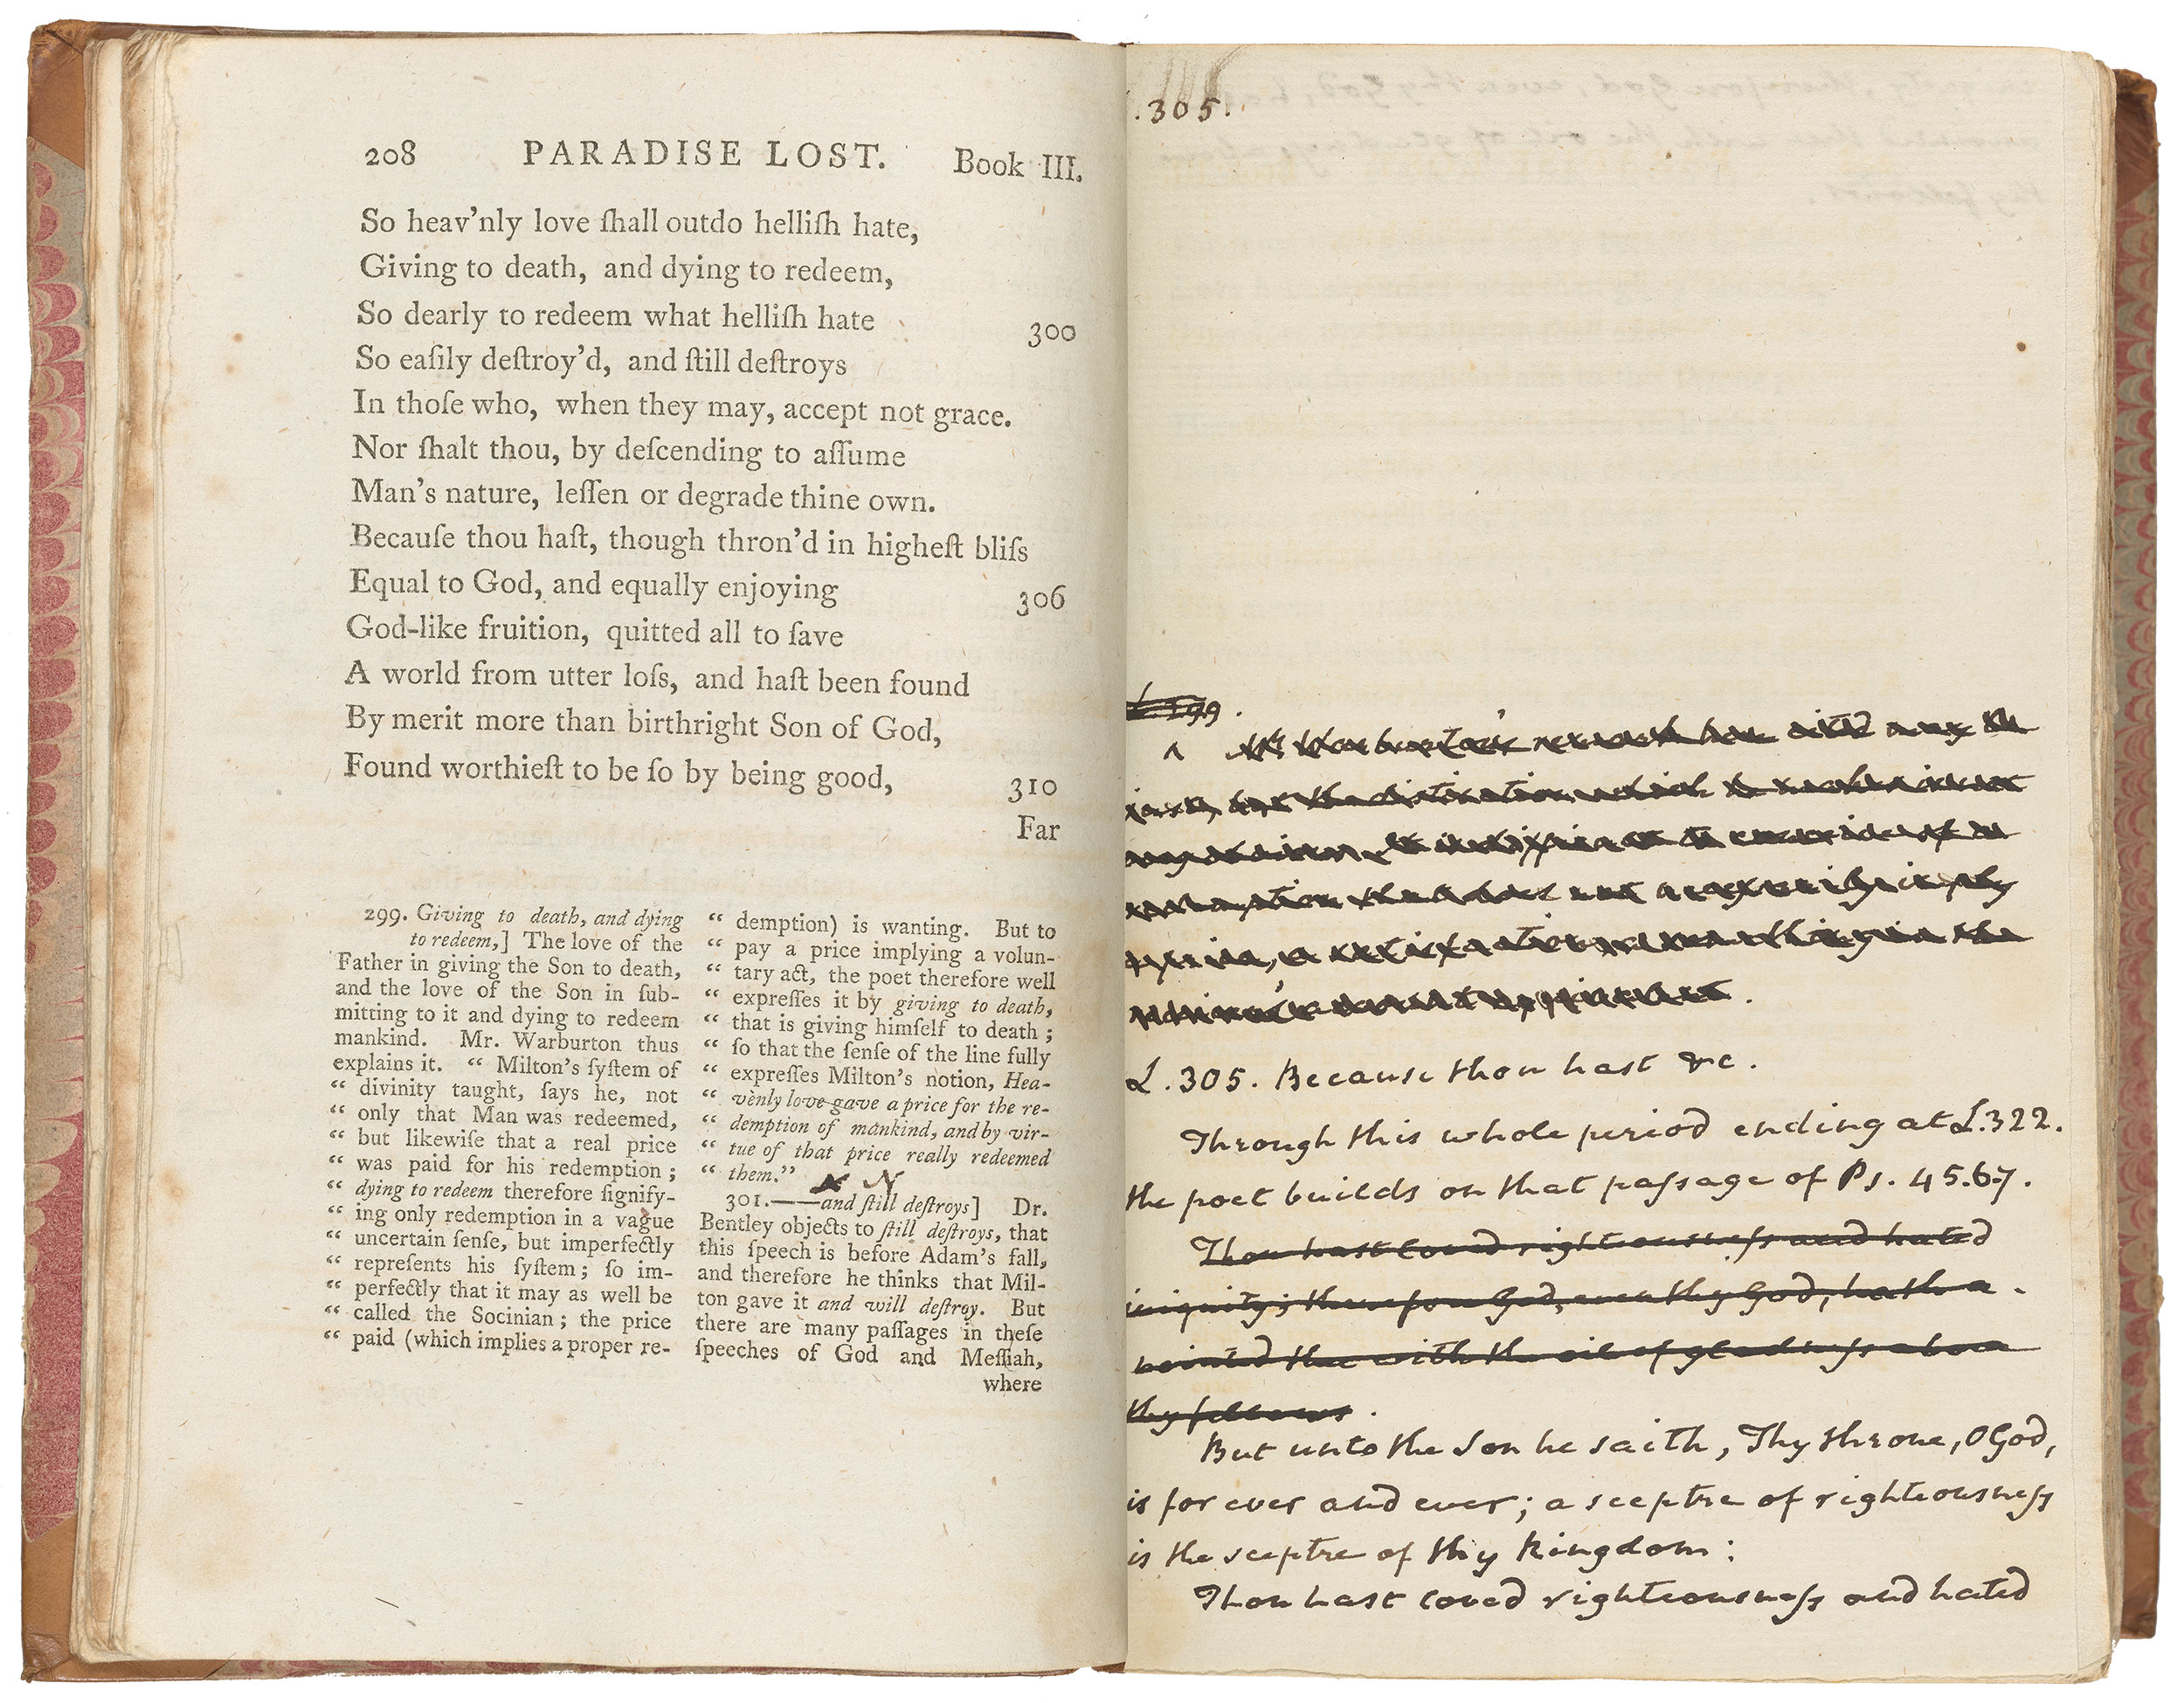 208 PARADISE LOST. Book III.
So heav'nly love ſhall outdo helliſh hate,
Giving to death, and dying to redeem,
So dearly to redeem what helliſh hate 300
So eaſily deſtroy'd, and ſtill deſtroys
In thoſe who, when they may, accept not grace.
Nor ſhalt thou, by deſcending to aſſume
Man's nature, leſſen or degrade thine own.
Becauſe thou haſt, though thron'd in higheſt bliſs
Equal to God, and equally enjoying 306
God-like fruition, quitted all to ſave
A world from utter loſs, and haſt been found
By merit more than birthright Son of God,
Found worthieſt to be ſo by being good, 310
Far
299. Giving to death, and dying
to redeem,] The love of the
Father in giving the Son to death,
and the love of the Son in ſub-
mitting to it and dying to redeem
mankind. Mr. Warburton thus
explains it. “ Milton's ſyſtem of
“ divinity taught, ſays he, not
“ only that Man was redeemed,
“ but likewiſe that a real price
“ was paid for his redemption ;
“ dying to redeem therefore ſignify-
“ ing only redemption in a vague
“ uncertain ſenſe, but imperfectly
“ repreſents his ſyſtem ; ſo im-
“ perfectly that it may as well be
“ called the Socinian ; the price
“ paid (which implies a proper re-
“ demption) is wanting. But to
“ pay a price implying a volun-
“ tary act, the poet therefore well
“ expreſſes it by giving to death,
“ that is giving himſelf to death ;
“ ſo that the ſenſe of the line fully
“ expreſſes Milton's notion, Hea-
“ venly love gave a price for the re-
“ demption of mankind, and by vir-
“ tue of that price really redeemed
“ them.”
301.——and ſtill deſtroys] Dr.
Bentley objects to ſtill deſtroys, that
this ſpeech is before Adam's fall,
and therefore he thinks that Mil-
ton gave it and will deſtroy. But
there are many paſſages in theſe
ſpeeches of God and Meſſiah,
where
.305.
L. 299.
L. 305. Because thou hast &c.
Through this whole period ending at L.322.
the poet builds on that paſsage of Ps. 45.6.7.
Thou hast loved righteousneſs and hated
iniquity; therefore God, even thy God, hath a-
nointed thee with the oil of gladneſs above
thy fellows.
But unto the Son he saith, Thy throne, O God,
is for ever and ever; a sceptre of righteousneſs
is the sceptre of thy kingdom:
Thou hast loved righteousneſs and hated